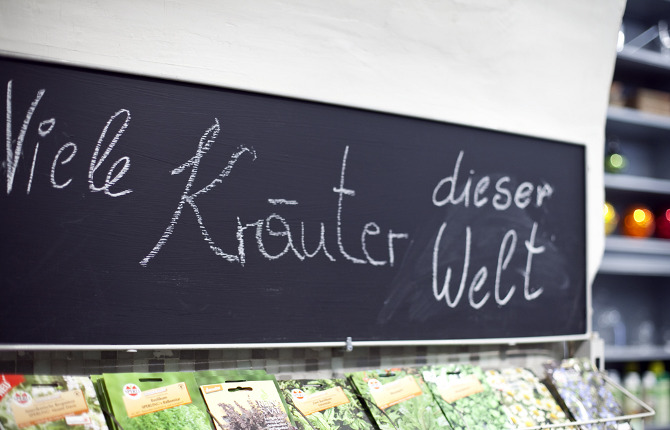 Viele Kräuter dieser
Welt